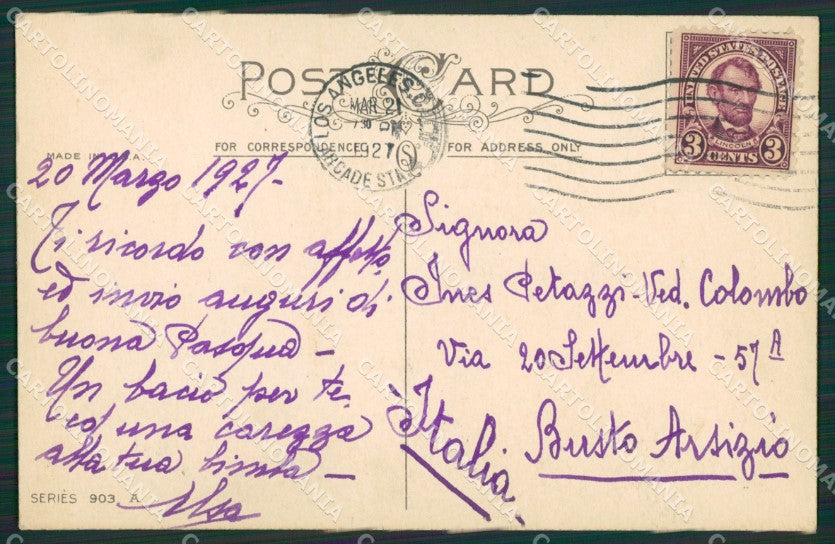 POST CARD
LOS ANGELES, C
MAR 21
7 30 PM
1927
ARCADE STA
UNITED STATES POSTAGE
LINCOLN
3 CENTS 3
FOR CORRESPONDENCE
FOR ADDRESS ONLY
MADE IN U.S.A.
20 Marzo 1927-
Ti ricordo con affetto
ed invio auguri di
buona Pasqua -
Un bacio per te
ed una carezza
alla tua bimba -
Elsa
SERIES 903 A
Signora
Ines Petazzi-Ved. Colombo
Via 20 Settembre - 57 A
Busto Arsizio
- Italia -
CARTOLINOMANIA